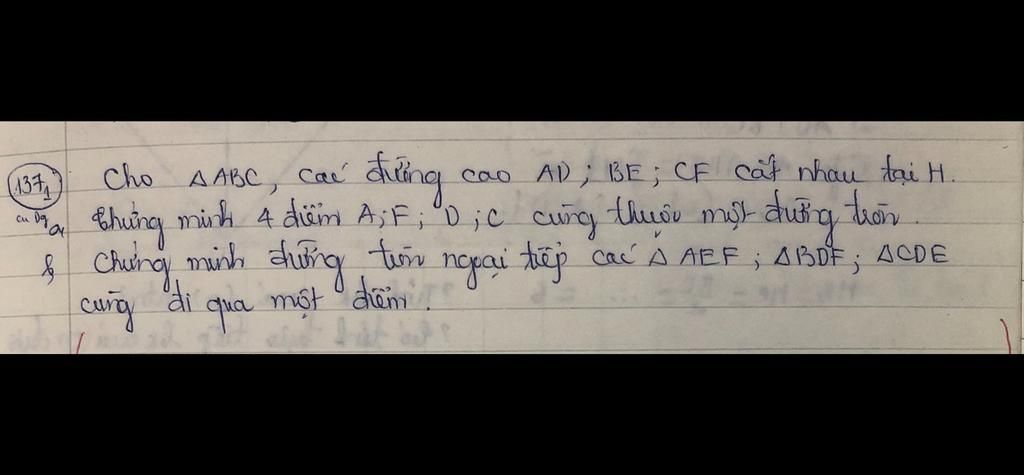 137₁ Cho △ABC, các đường cao AD; BE; CF cắt nhau tại H.
a, Chứng minh 4 điểm A; F; D; C cùng thuộc một đường tròn.
b, Chứng minh đường tròn ngoại tiếp các △AEF; △BDF; △CDE
cùng đi qua một điểm.